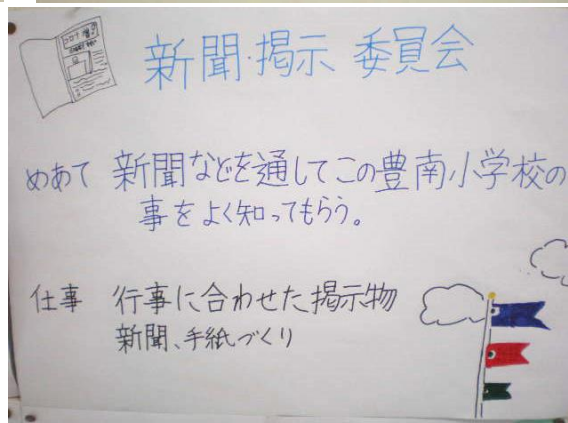 新聞·掲示 委員会
めあて 新聞などを通してこの豊南小学校の
事をよく知ってもらう。
仕事 行事に合わせた掲示物
新聞、手紙づくり